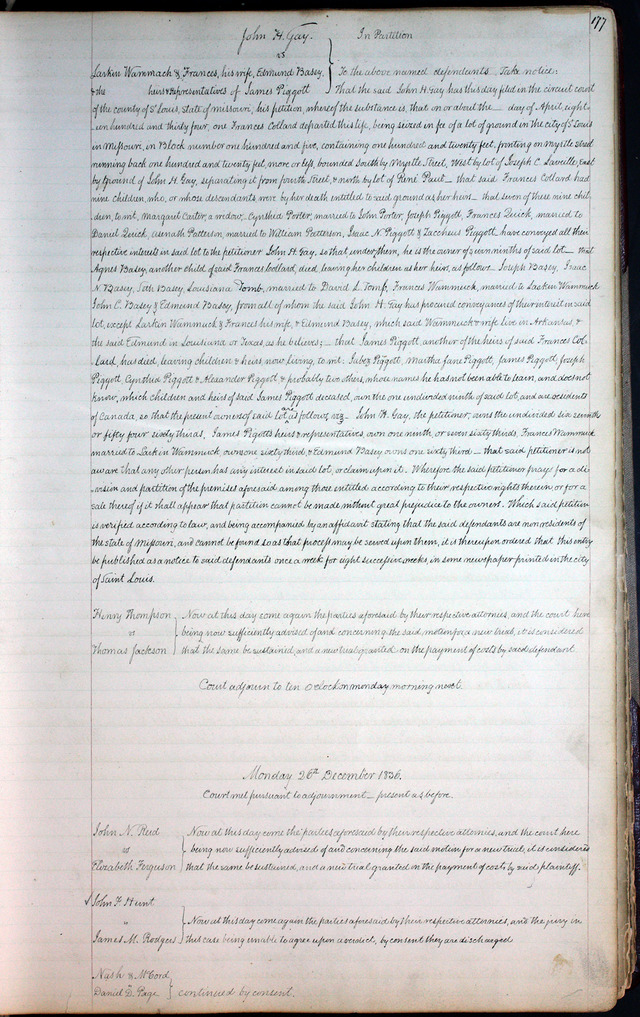 177
John H. Gay. In Partition
vs
Larkin Wammack & Frances, his wife, Edmund Basey, To the above named defendants Take notice:
& the heirs & representatives of James Piggott That the said John H. Gay has this day filed in the circuit court
of the county of St Louis, State of Missouri, his petition, whereof the substance is, that on or about the _ day of April, eight-
-een hundred and thirty four, one Frances Collard departed this life, being seized in fee of a lot of ground in the city of St Louis
in Missouri, in Block number one hundred and five, containing one hundred and twenty feet, fronting on Myrtle Street
running back one hundred and twenty feet, more or less, bounded South by Myrtle Street, West by lot of Joseph C. Laveille, East
by ground of John H. Gay, separating it from fourth Street, & north by lot of René Paul _ that said Frances Collard had
nine children, who, or whose descendants were by her death entitled to said ground as her heirs _ that seven of these nine chil-
dren, to wit, Margaret Carter, a widow, Cynthia Porter, married to John Porter, Joseph Piggott, Frances Quick, married to
Daniel Quick, Asenath Patterson, married to William Patterson, Isaac N. Piggott & Zaccheus Piggott, have conveyed all their
respective interest in said lot to the petitioner John H. Gay, so that, under them, he is the owner of seven ninths of said lot _ that
Agnes Basey, another child of said Frances Collard, died, leaving her children as her heirs, as follows _ Joseph Basey, Isaac
N. Basey, Seth Basey, Louisiana Tomb, married to David L. Tomb, Frances Wammuck, married to Larkin Wammuck
John C. Basey & Edmund Basey, from all of whom the said John H. Gay has procured conveyances of their interest in said
lot, except Larkin Wammuck & Frances his wife, & Edmund Basey, which said Wammuck & wife live in Arkansas, &
the said Edmund in Louisiana or Texas as he believes; _ that James Piggott, another of the heirs of said Frances Col-
-lard, has died, leaving children & heirs now living, to wit: Piggott, Martha Jane Piggott, James Piggott, Joseph
Piggott, Cynthia Piggott & Alexander Piggott & probably two others, whose names he has not been able to learn, and does not
know, which children and heirs of said James Piggott deceased, own the one undivided ninth of said lot, and are residents
of Canada, so that the present owners of said lot are as follows, viz _ John H. Gay, the petitioner, owns the undivided six sevenths
or fifty four sixty thirds, James Pigotts heirs & representatives, own one ninth, or seven sixty thirds, Frances Wammuck
married to Larkin Wammuck owns one sixty third, & Edmund Basey owns one sixty third _ that said petitioner is not
aware that any other person has any interest in said lot, or claim upon it. Wherefore the said petition prays for a di-
-vision and partition of the premises aforesaid among those entitled according to their respective rights therein; or for a
sale thereof if it shall appear that partition cannot be made without great prejudice to the owners. Which said petition
is verified according to law, and being accompanied by an affidavit stating that the said defendants are non residents of
the state of Missouri, and cannot be found so as that process may be served upon them, it is thereupon ordered that this entry
be published as a notice to said defendants once a week for eight successive weeks, in some newspaper printed in the city
of Saint Louis.
Henry Thompson Now at this day come again the parties aforesaid by their respective attornies, and the court here
vs being now sufficiently advised of and concerning the said, motion for a new trial, it is considered
Thomas Jackson that the same be sustained, and a new trial granted on the payment of costs by said defendant
Court adjourn to ten o'clock on monday morning next.
Monday 26th December 1836.
Court met pursuant to adjournment _ present as before.
John N. Reed Now at this day come the parties aforesaid by their respective attornies, and the court here
vs being now sufficiently advised of and concerning the said motion for a new trial, it is considered
Elizabeth Ferguson that the same be sustained, and a new trial granted on the payment of costs by said plaintiff.
John F. Hunt
" Now at this day come again the parties aforesaid by their respective attornies, and the jury in
James M. Rodgers this case being unable to agree upon a verdict, by consent they are discharged
Nash & McCord,
"
Daniel D. Page continued by consent.